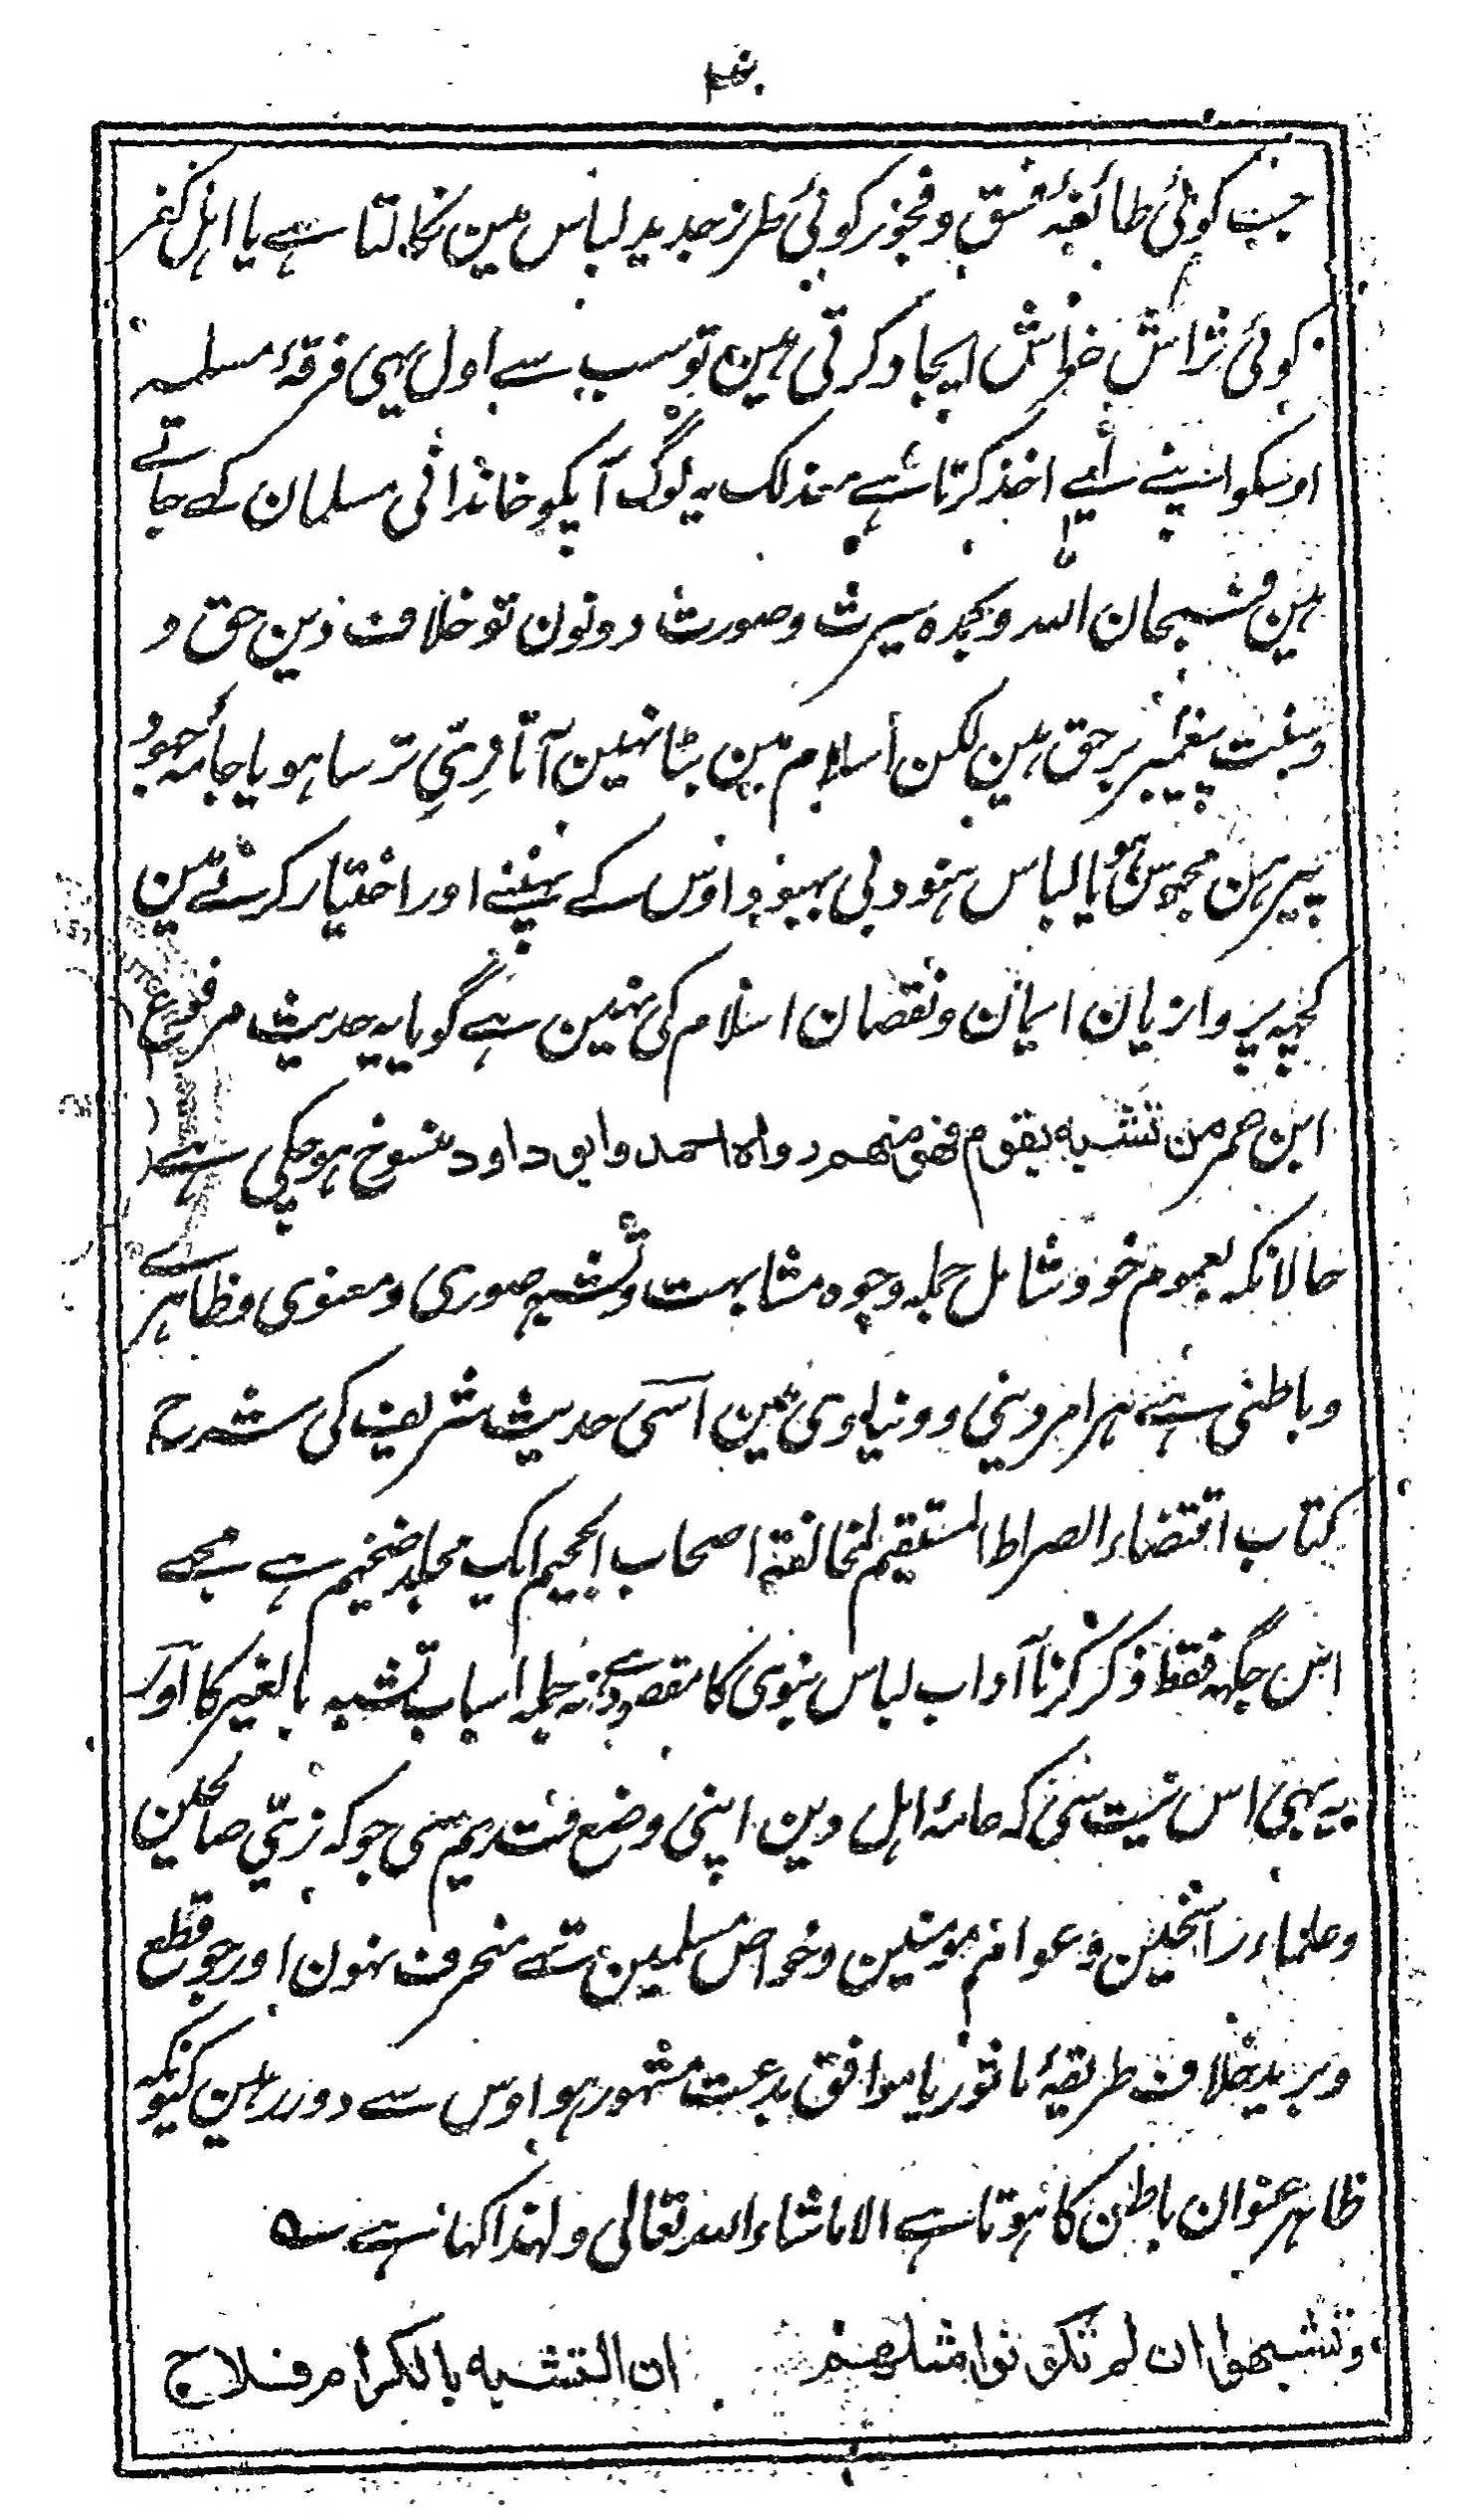 جب کوئی طائفۂ فسق و فجور کوئی طرز جدید لباس مین نکالتا ہے یا اہل کفر
کوئی تراش خراش ایجاد کرتی ہین تو سب سے اول یہی فرقۂ مسلمیہ
اوسکو اپنے لیے اخذ کرتا ہے معذلک یہ لوگ آپکو خاندانی مسلمان کہے جاتے
ہین فسبحان اللہ وبحمدہ سیرت وصورت دونون تو خلاف دین حق و
وسنت پیغمبر برحق ہین لکن اسلام مین بٹا نہین آتا زیّ ترسا ہو یا جامۂ جہود
پیرہن مجوس ہو یا لباس ہنود بی بہبود اوس کے پہننے اور اختیار کرنے مین
کچہہ پروا زیان ایمان ونقصان اسلام کی نہین ہے گویا یہ حدیث مرفوع
ابن عمر من تشبه بقوم فهو منهم رواه احمد وابو داود منسوخ ہوچکی ہے
حالانکہ بعموم خود شامل جملہ وجوہ مشابہت وتشبہ صوری ومعنوی وظاہرے
وباطنی ہے ہر امر دینی ودنیاوی مین اسی حدیث شریف کی شرح
کتاب اقتضاء الصراط المستقیم لمخالفۃ اصحاب الجحیم ایک مجلد ضخیم ہے مجہے
اس جگہہ فقط ذکر کرنا آداب لباس نبوی کا مقصود ہے نہ جملہ اسباب تشبہ بالغیر کا اور
یہ بہی اس نیت سی کہ عامۂ اہل دین اپنی وضع قدیم سی جو کہ زیّ صالحین
وعلماء راسخین وعوام مومنین وخواص مسلمین ہے منحرف نہون اور جو قطع
وبرید خلاف طریقۂ ماثور یا موافق بدعت مشہور ہو اوس سے دور رہین کیونکہ
ظاہر عنوان باطن کا ہوتا ہے الا ماشاء اللہ تعالی ولہذا کہا ہے ؎
وتشبهوا ان لم تكونوا مثلهم ان التشبه بالكرام فلاح